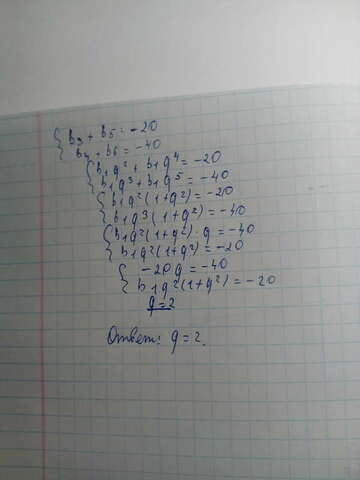 { b3 + b5 = -20
b4 + b6 = -40
{ b1q² + b1q⁴ = -20
b1q³ + b1q⁵ = -40
{ b1q²(1+q²) = -20
b1q³(1+q²) = -40
{ b1q²(1+q²)·q = -40
b1q²(1+q²) = -20
{ -20q = -40
b1q²(1+q²) = -20
q=2
Ответ: q=2.